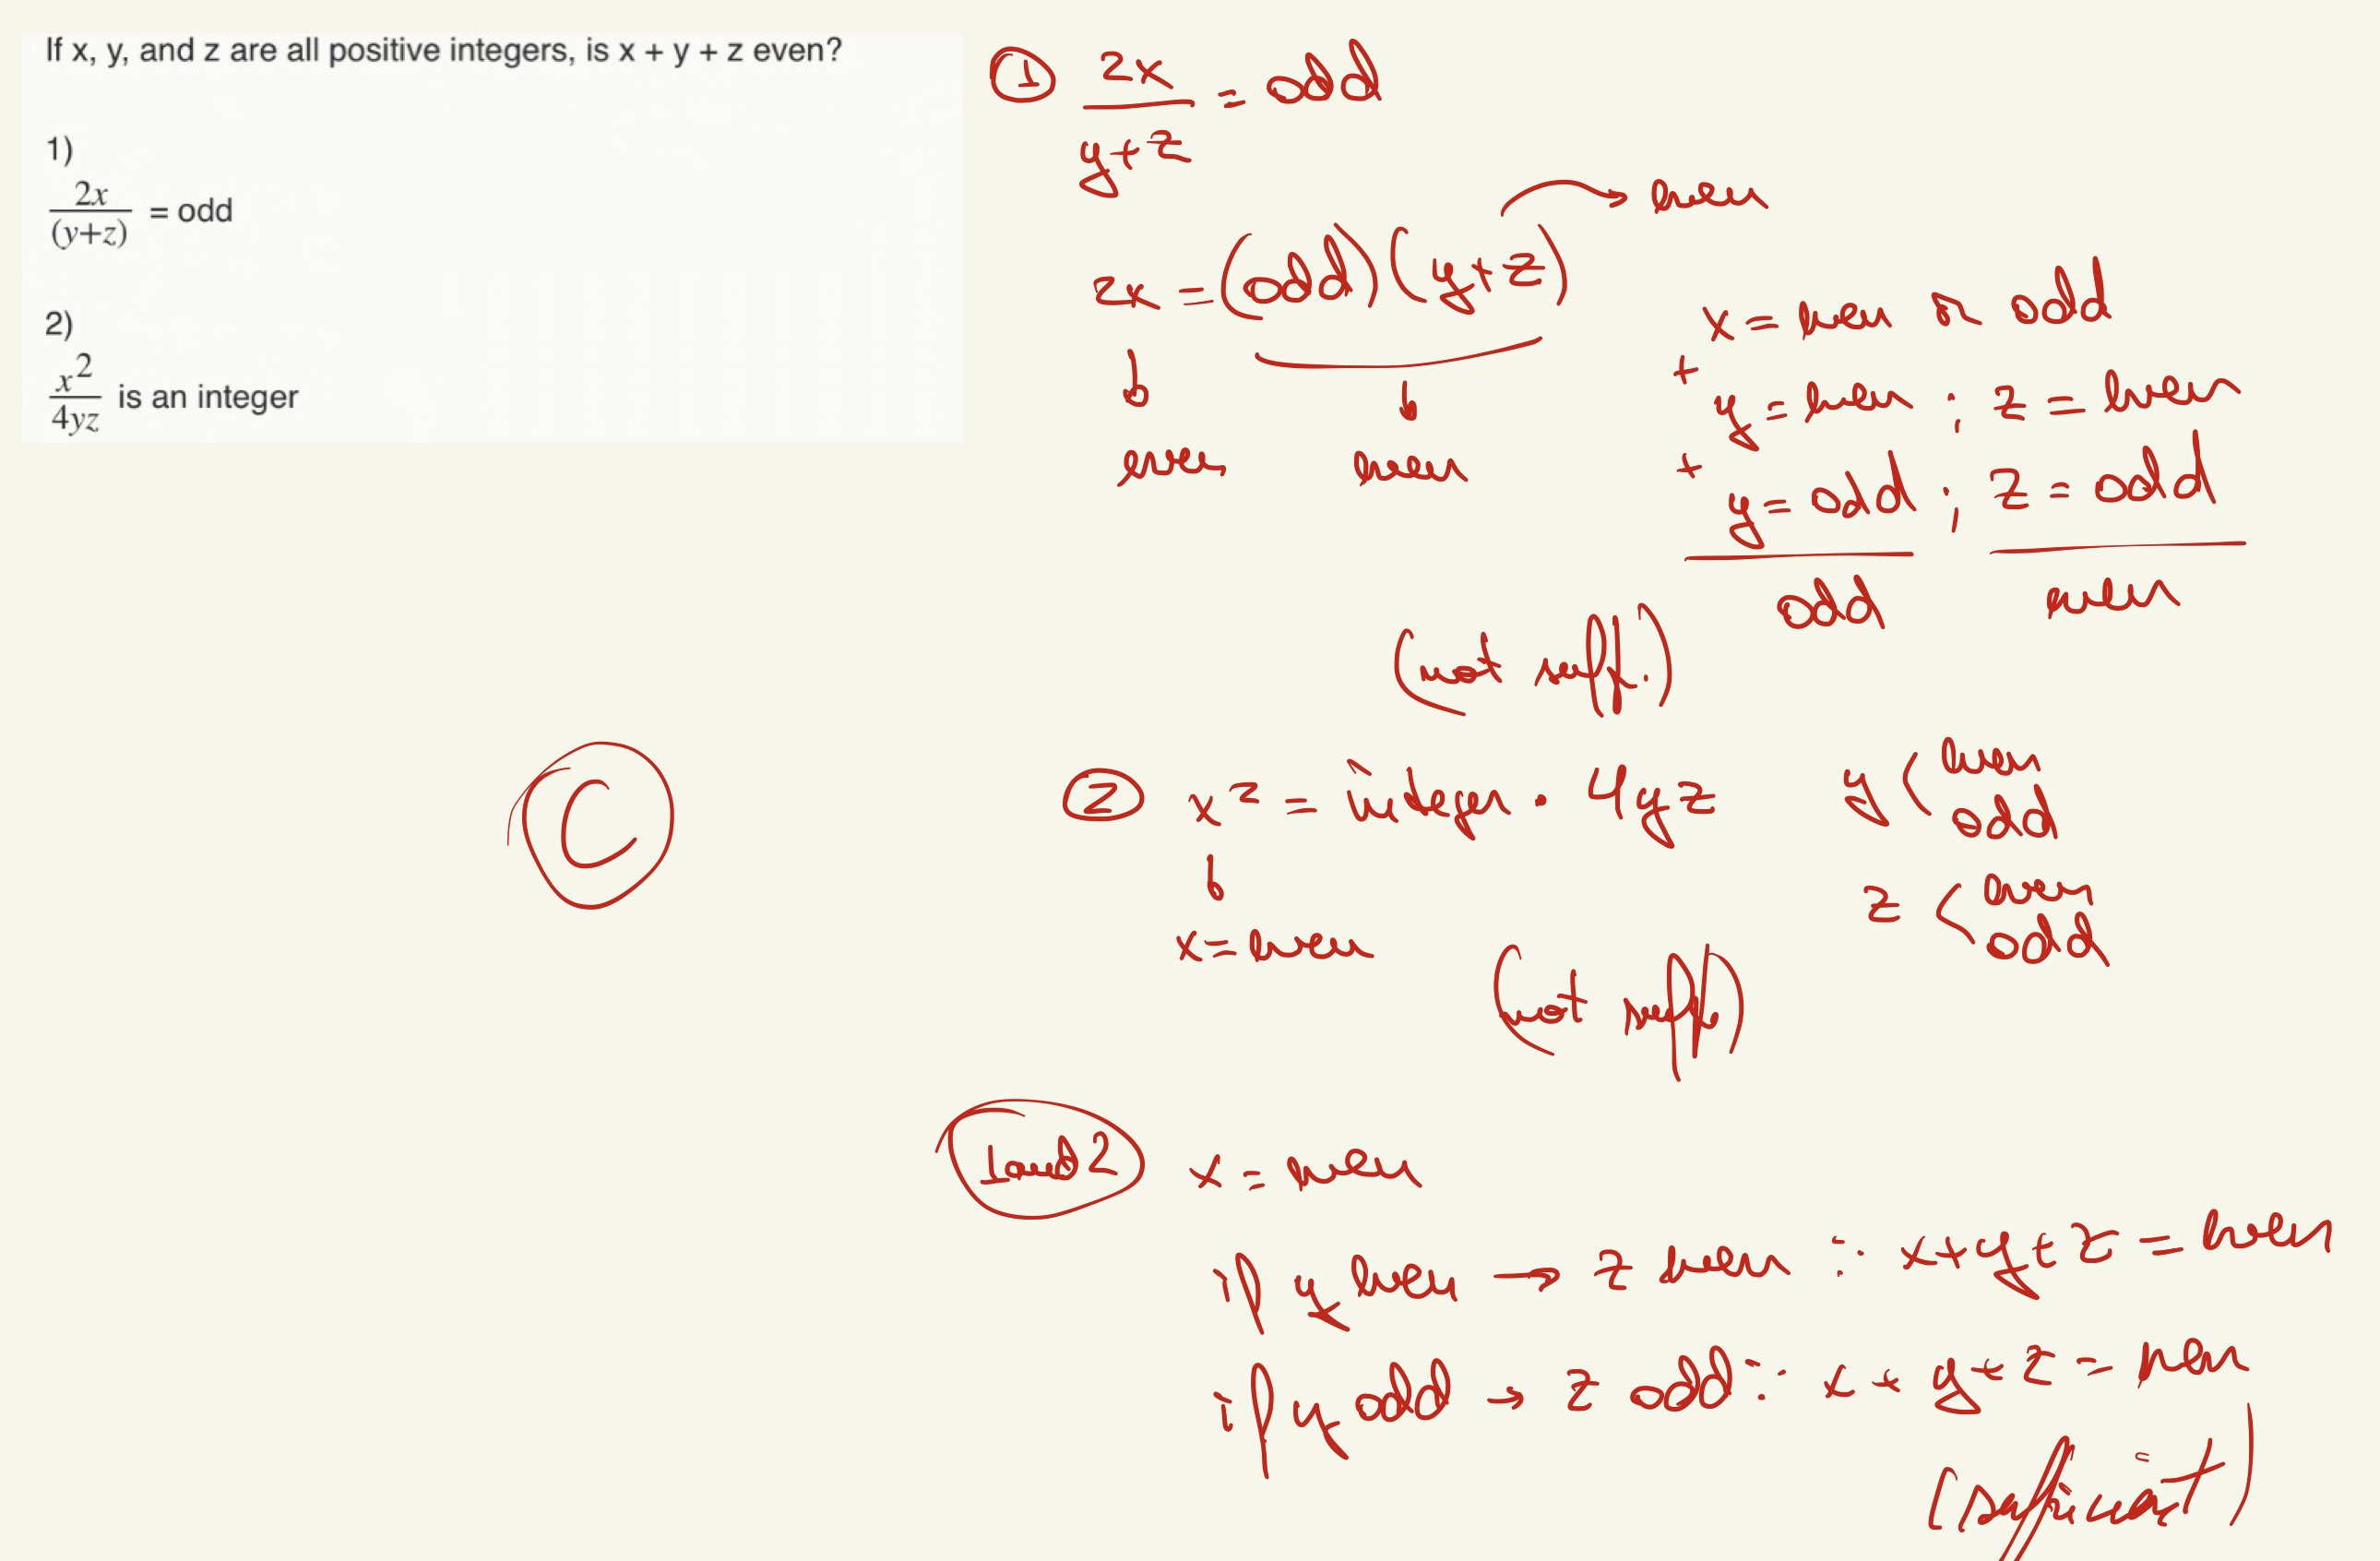 If x, y, and z are all positive integers, is x + y + z even?
1)
2x/(y+z) = odd
2)
x²/4yz is an integer
① 2x/y+z = odd
2x = (odd)(y+z) → even
even even
x = even or odd
+ y = even ; z = even
+ y = odd ; z = odd
odd even
(not suff.)
② x² = integer · 4yz
x = even
y < even odd
z < even odd
(not suff)
C
1 and 2 x = even
if y even → z even ∵ x+y+z = even
if y odd → z odd ∵ x+y+z = even
(sufficient)